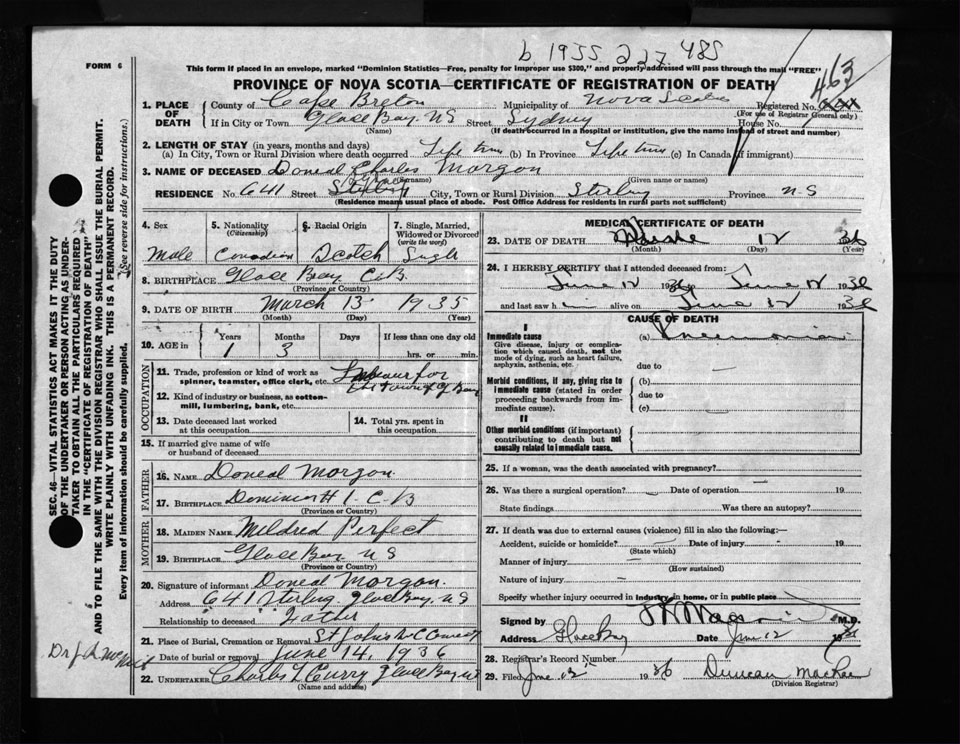 b 1935 237.485
463
FORM 6
This form if placed in an envelope, marked "Dominion Statistics—Free, penalty for improper use $300," and properly addressed will pass through the mail "FREE"
PROVINCE OF NOVA SCOTIA—CERTIFICATE OF REGISTRATION OF DEATH
1. PLACE OF DEATH
County of Cape Breton Municipality of Nova Scotia Registered No.
(For use of Registrar General only)
If in City or Town Glace Bay. NS Street Sydney House No.
(Name) (If death occurred in a hospital or institution, give the name instead of street and number)
2. LENGTH OF STAY (in years, months and days)
(a) In City, Town or Rural Division where death occurred Life time (b) In Province Life time (c) In Canada (if immigrant)
3. NAME OF DECEASED Doneal Charles Morgan
(Surname) (Given name or names)
RESIDENCE No. 641 Street Sterling City, Town or Rural Division Sterling Province N.S
(Residence means usual place of abode. Post Office Address for residents in rural parts not sufficient)
4. Sex 5. Nationality (Citizenship) 6. Racial Origin 7. Single, Married, Widowed or Divorced (write the word)
Male Canadian Scotch Single
8. BIRTHPLACE Glace Bay C.B.
(Province or Country)
9. DATE OF BIRTH March 13 1935
(Month) (Day) (Year)
10. AGE in Years Months Days If less than one day old
1 3 hrs. or min.
OCCUPATION
11. Trade, profession or kind of work as spinner, teamster, office clerk, etc. Labour for
the Town of G Bay
12. Kind of industry or business, as cotton-mill, lumbering, bank, etc.
13. Date deceased last worked at this occupation
14. Total yrs. spent in this occupation
15. If married give name of wife or husband of deceased
FATHER
16. NAME Doneal Morgan
17. BIRTHPLACE Dominion #1. C.B
(Province or Country)
MOTHER
18. MAIDEN NAME Mildred Perfect
19. BIRTHPLACE Glace Bay NS
(Province or Country)
20. Signature of informant Doneal Morgan.
Address 641 Sterling Glace Bay. NS
Relationship to deceased Father
21. Place of Burial, Cremation or Removal St John's
Date of burial or removal June 14, 1936
22. UNDERTAKER Charles L Curry Glace Bay NS
(Name and address)
MEDICAL CERTIFICATE OF DEATH
23. DATE OF DEATH 12 36
(Month) (Day) (Year)
24. I HEREBY CERTIFY that I attended deceased from:
June 12 1936 to June 12 1936
and last saw h im alive on June 12 1936
CAUSE OF DEATH
I
Immediate cause
Give disease, injury or complication which caused death, not the mode of dying, such as heart failure, asphyxia, asthenia, etc.
(a) Pneumonia
due to
Morbid conditions, if any, giving rise to immediate cause (stated in order proceeding backwards from immediate cause).
(b)
due to
(c)
II
Other morbid conditions (if important) contributing to death but not causally related to immediate cause.
25. If a woman, was the death associated with pregnancy?
26. Was there a surgical operation? Date of operation 19
State findings Was there an autopsy?
27. If death was due to external causes (violence) fill in also the following:—
Accident, suicide or homicide? Date of injury 19
(State which)
Manner of injury
(How sustained)
Nature of injury
Specify whether injury occurred in industry, in home, or in public place
Signed by M.D.
Address Glace Bay Date June 12 1936
28. Registrar's Record Number
29. Filed June 12 1936 Duncan
(Division Registrar)
SEC. 46—VITAL STATISTICS ACT MAKES IT THE DUTY
OF THE UNDERTAKER OR PERSON ACTING AS UNDER-
TAKER TO OBTAIN ALL THE PARTICULARS REQUIRED
IN THE "CERTIFICATE OF REGISTRATION OF DEATH"
AND TO FILE THE SAME WITH THE DIVISION REGISTRAR WHO SHALL ISSUE THE BURIAL PERMIT.
WRITE PLAINLY WITH UNFADING INK. THIS IS A PERMANENT RECORD.
Every item of information should be carefully supplied. (See reverse side for instructions.)